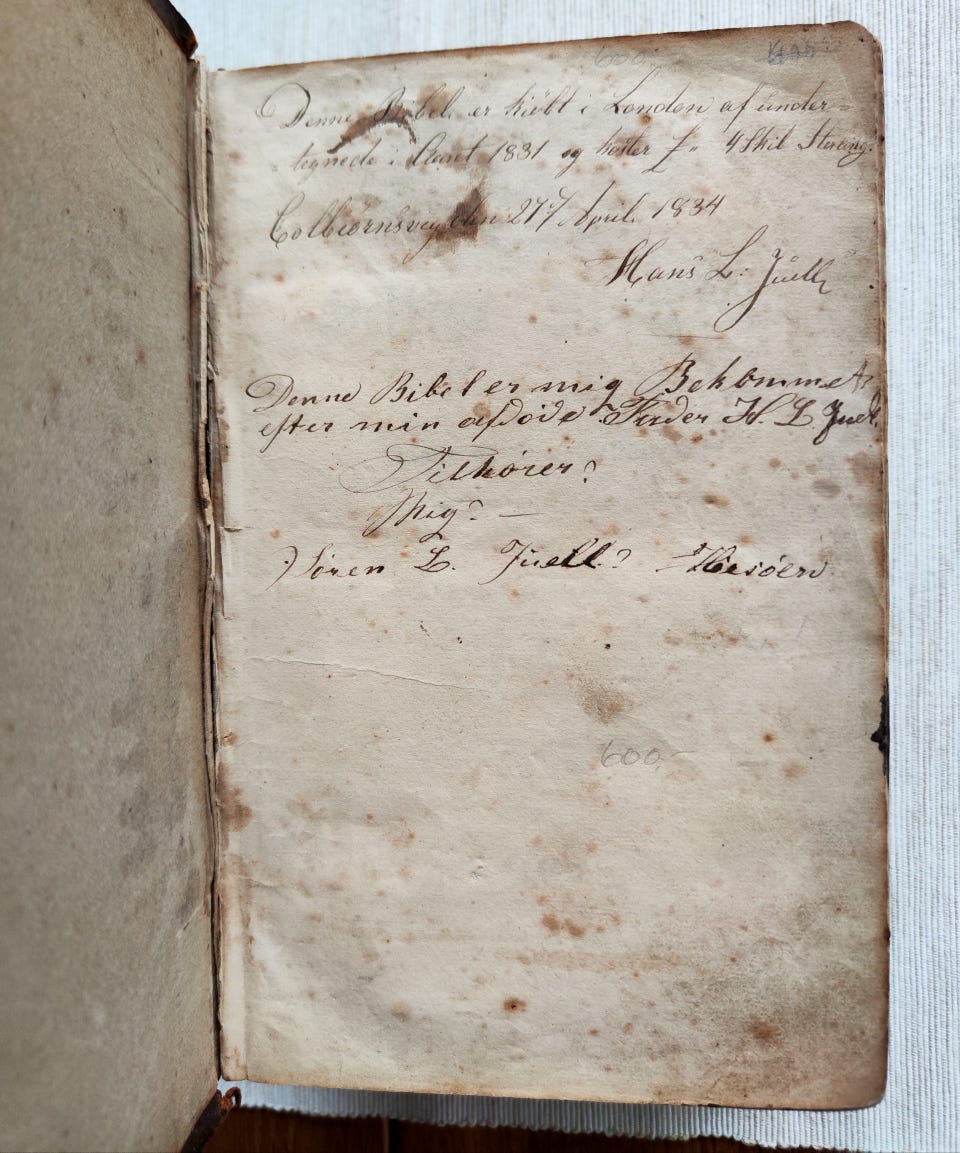 600,-
Denne Bibel er kiøbt i London af under=
tegnede i Aaret 1831 og koster £ " 4 Skil Sterling.
Colbiørnsvig den 27 April 1834
Hans L. Juell
Denne Bibel er mig Bekommet
efter min afdøde Fader H. L. Juell.
Tilhører?
Mig? —
Søren L. Juell? Hesøen.
600,-